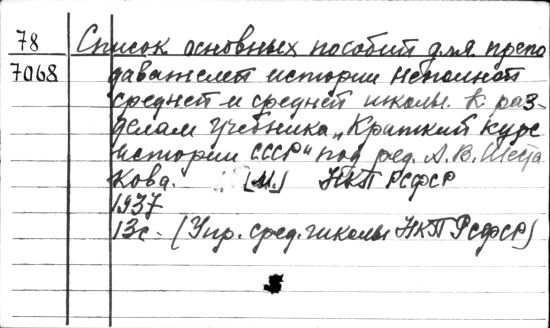 78 Список основных пособий для препо
7068 давателей истории неполной
средней и средней школы. К раз-
делам учебника „Краткий курс
истории СССР" под ред. А. В. Шеста
кова. [М.] НКП РСФСР
1937
13с. (Упр. сред. школы НКП РСФСР)